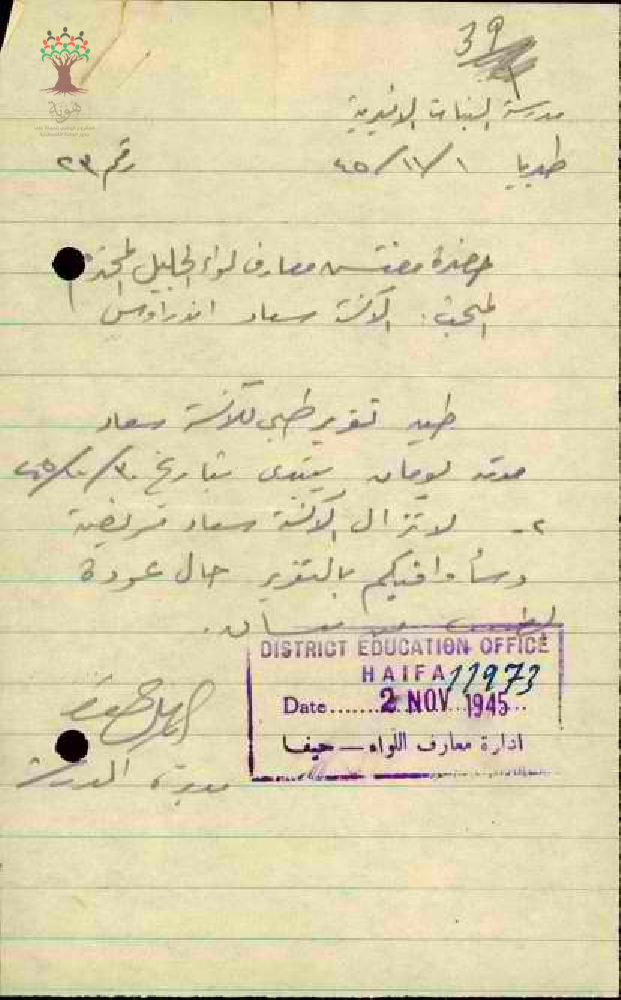 39
هوية
مدرسة البنات الاميرية
طبريا ١/١١/٤٥ رقم ٢٣
حضرة مفتش معارف لواء الجليل المحترم
المبحث: الآنسة سعاد اندراوس
طيه تقرير طبي للآنسة سعاد
مدته يومان يبتدئ بتاريخ ٣٠/١٠/٤٥
٢- لا تزال الآنسة سعاد مريضة
وسأوافيكم بالتقرير حال عودة
DISTRICT EDUCATION OFFICE
HAIFA 11973
Date....... 2 NOV 1945...
ادارة معارف اللواء — حيفا
مديرة المدرسة